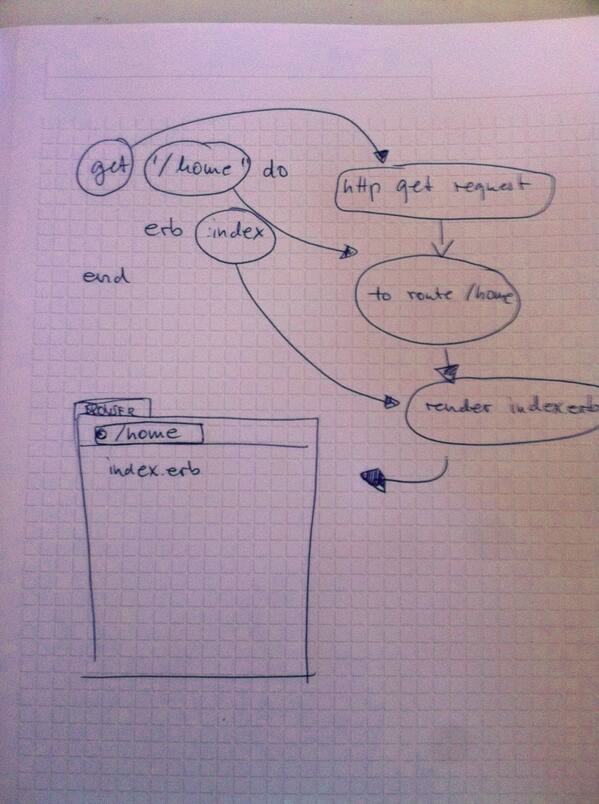 get '/home' do
erb :index
end
http get request
to route /home
render index.erb
BROWSER
/home
index.erb